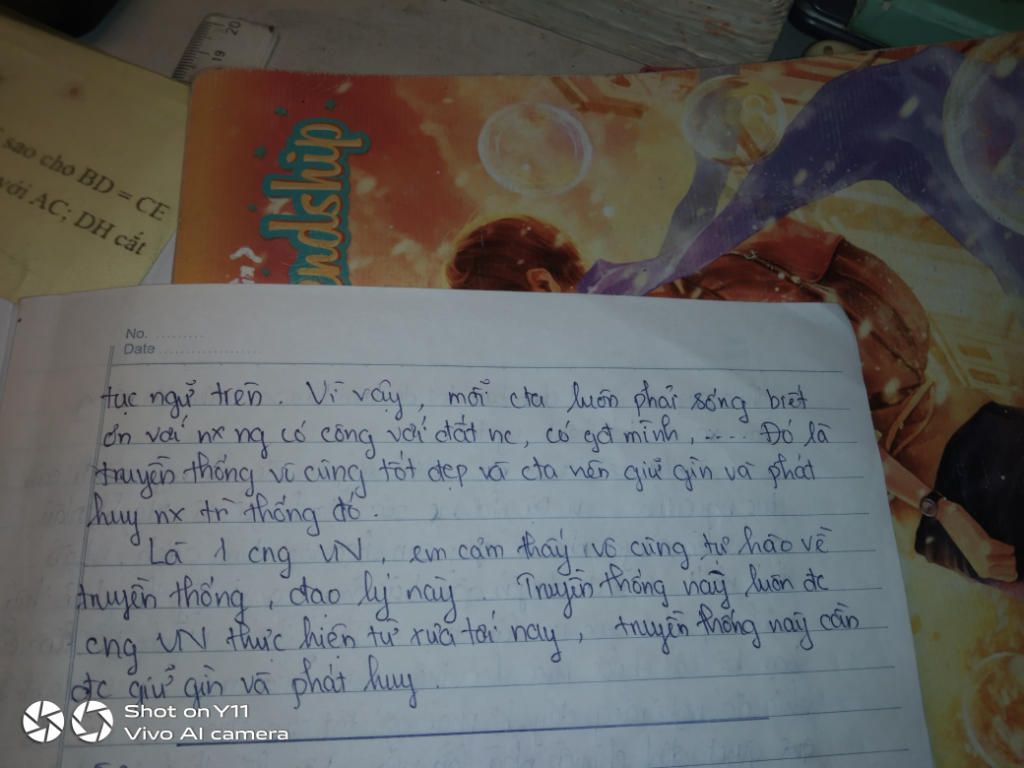 19 20
sao cho BD = CE
với AC; DH cắt
ndship
No. .........
Date ...................
tục ngữ trên. Vì vậy, mỗi cta luôn phải sống biết
ơn với nx ng có công với đất nc, có gđ mình, .... Đó là
truyền thống vô cùng tốt đẹp và cta nên giữ gìn và phát
huy nx tr thống đó.
Là 1 cng VN, em cảm thấy vô cùng tự hào về
truyền thống, đạo lý này. Truyền thống này luôn đc
cng VN thực hiện từ xưa tới nay, truyền thống này cần
đc giữ gìn và phát huy.
Shot on Y11
Vivo AI camera